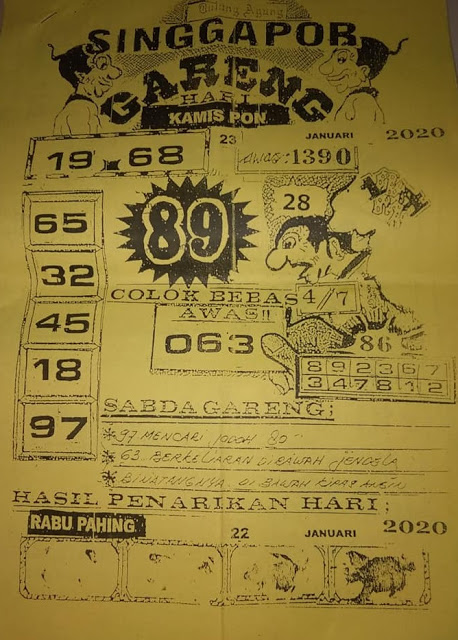 Tulang Agung
SINGGAPOR
GARENG
HARI
KAMIS PON
23 JANUARI 2020
19 68
AWAS: 1390
65
89
28
32
COLOK BEBAS 4/7
AWAS!!
45
063
86
18
892367
347812
97
SABDA GARENG;
*97 MENCARI JODOH 80
*63. BERKELIARAN DIBAWAH JENDELA
*BINATANGNYA DI BAWAH KIPAS ANGIN
HASIL PENARIKAN HARI;
RABU PAHING
22 JANUARI 2020